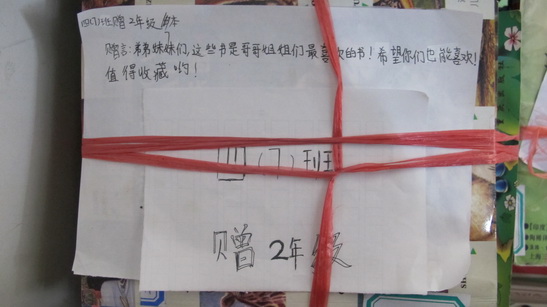 四(7)班赠2年级
赠言:弟弟妹妹们,这些书是哥哥姐姐们最喜欢的书!希望你们也能喜欢!
值得收藏哟!
四(7)班
赠2年级